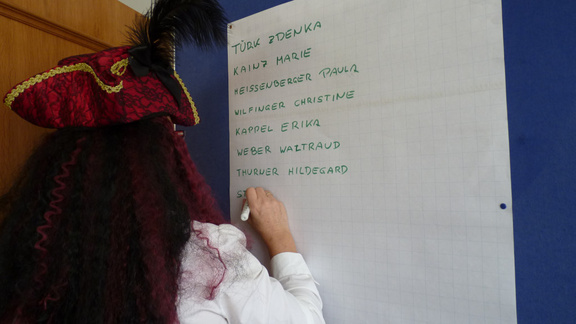 TÜRK ZDENKA
KAINZ MARIE
HEISSENBERGER PAULA
WILFINGER CHRISTINE
KAPPEL ERIKA
WEBER WALTRAUD
THURNER HILDEGARD